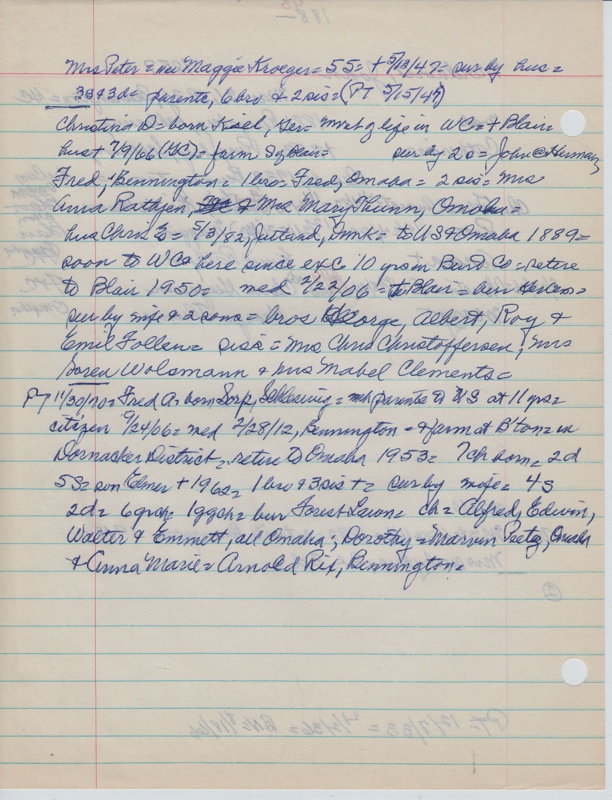 Mrs Peter = nee Maggie Kroeger = 55 = + 5/13/47 = sur by hus =
3s & 3d = parents, 6 bro & 2 sis = (PT 5/15/47)
Christina D = born Kiel, Ger = most of life in WC = + Blair =
hus + 7/9/66 (YC) = farm S of Blair = sur by 2s = John & Herman,
Fred, Bennington = 1 bro = Fred, Omaha = 2 sis = Mrs
Anna Rathjen, & Mrs Mary Thunn, Omaha =
hus Chris = 5/3/82, Jutland, Dmk = to US & Omaha 1889 =
soon to WCo here since exc 10 yrs in Burt Co = retire
to Blair 1950 = med 2/22/06 = to Blair = bur
sur by wife & 2 sons = bros George, Albert, Roy &
Emil Follen = sis = Mrs Chris Christoffersen, Mrs
Soren Wolsmann & Mrs Mabel Clements =
PT 11/30/70 = Fred A = born Sorp, Schleswig = parents to US at 11 yrs =
citizen 9/24/06 = med 2/28/12, Bennington = & farm at B'ton = in
Dornacker District = retire to Omaha 1953 = 7 ch born = 2d
5s = son Elmer + 1962 = 1 bro & 3 sis + = sur by wife = 4s
2d = 6 grch = 1 ggch = bur Forest Lawn = ch = Alfred, Edwin,
Walter & Emmett, all Omaha; Dorothy = Marvin Peetz, Omaha
& Anna Marie = Arnold Rix, Bennington =